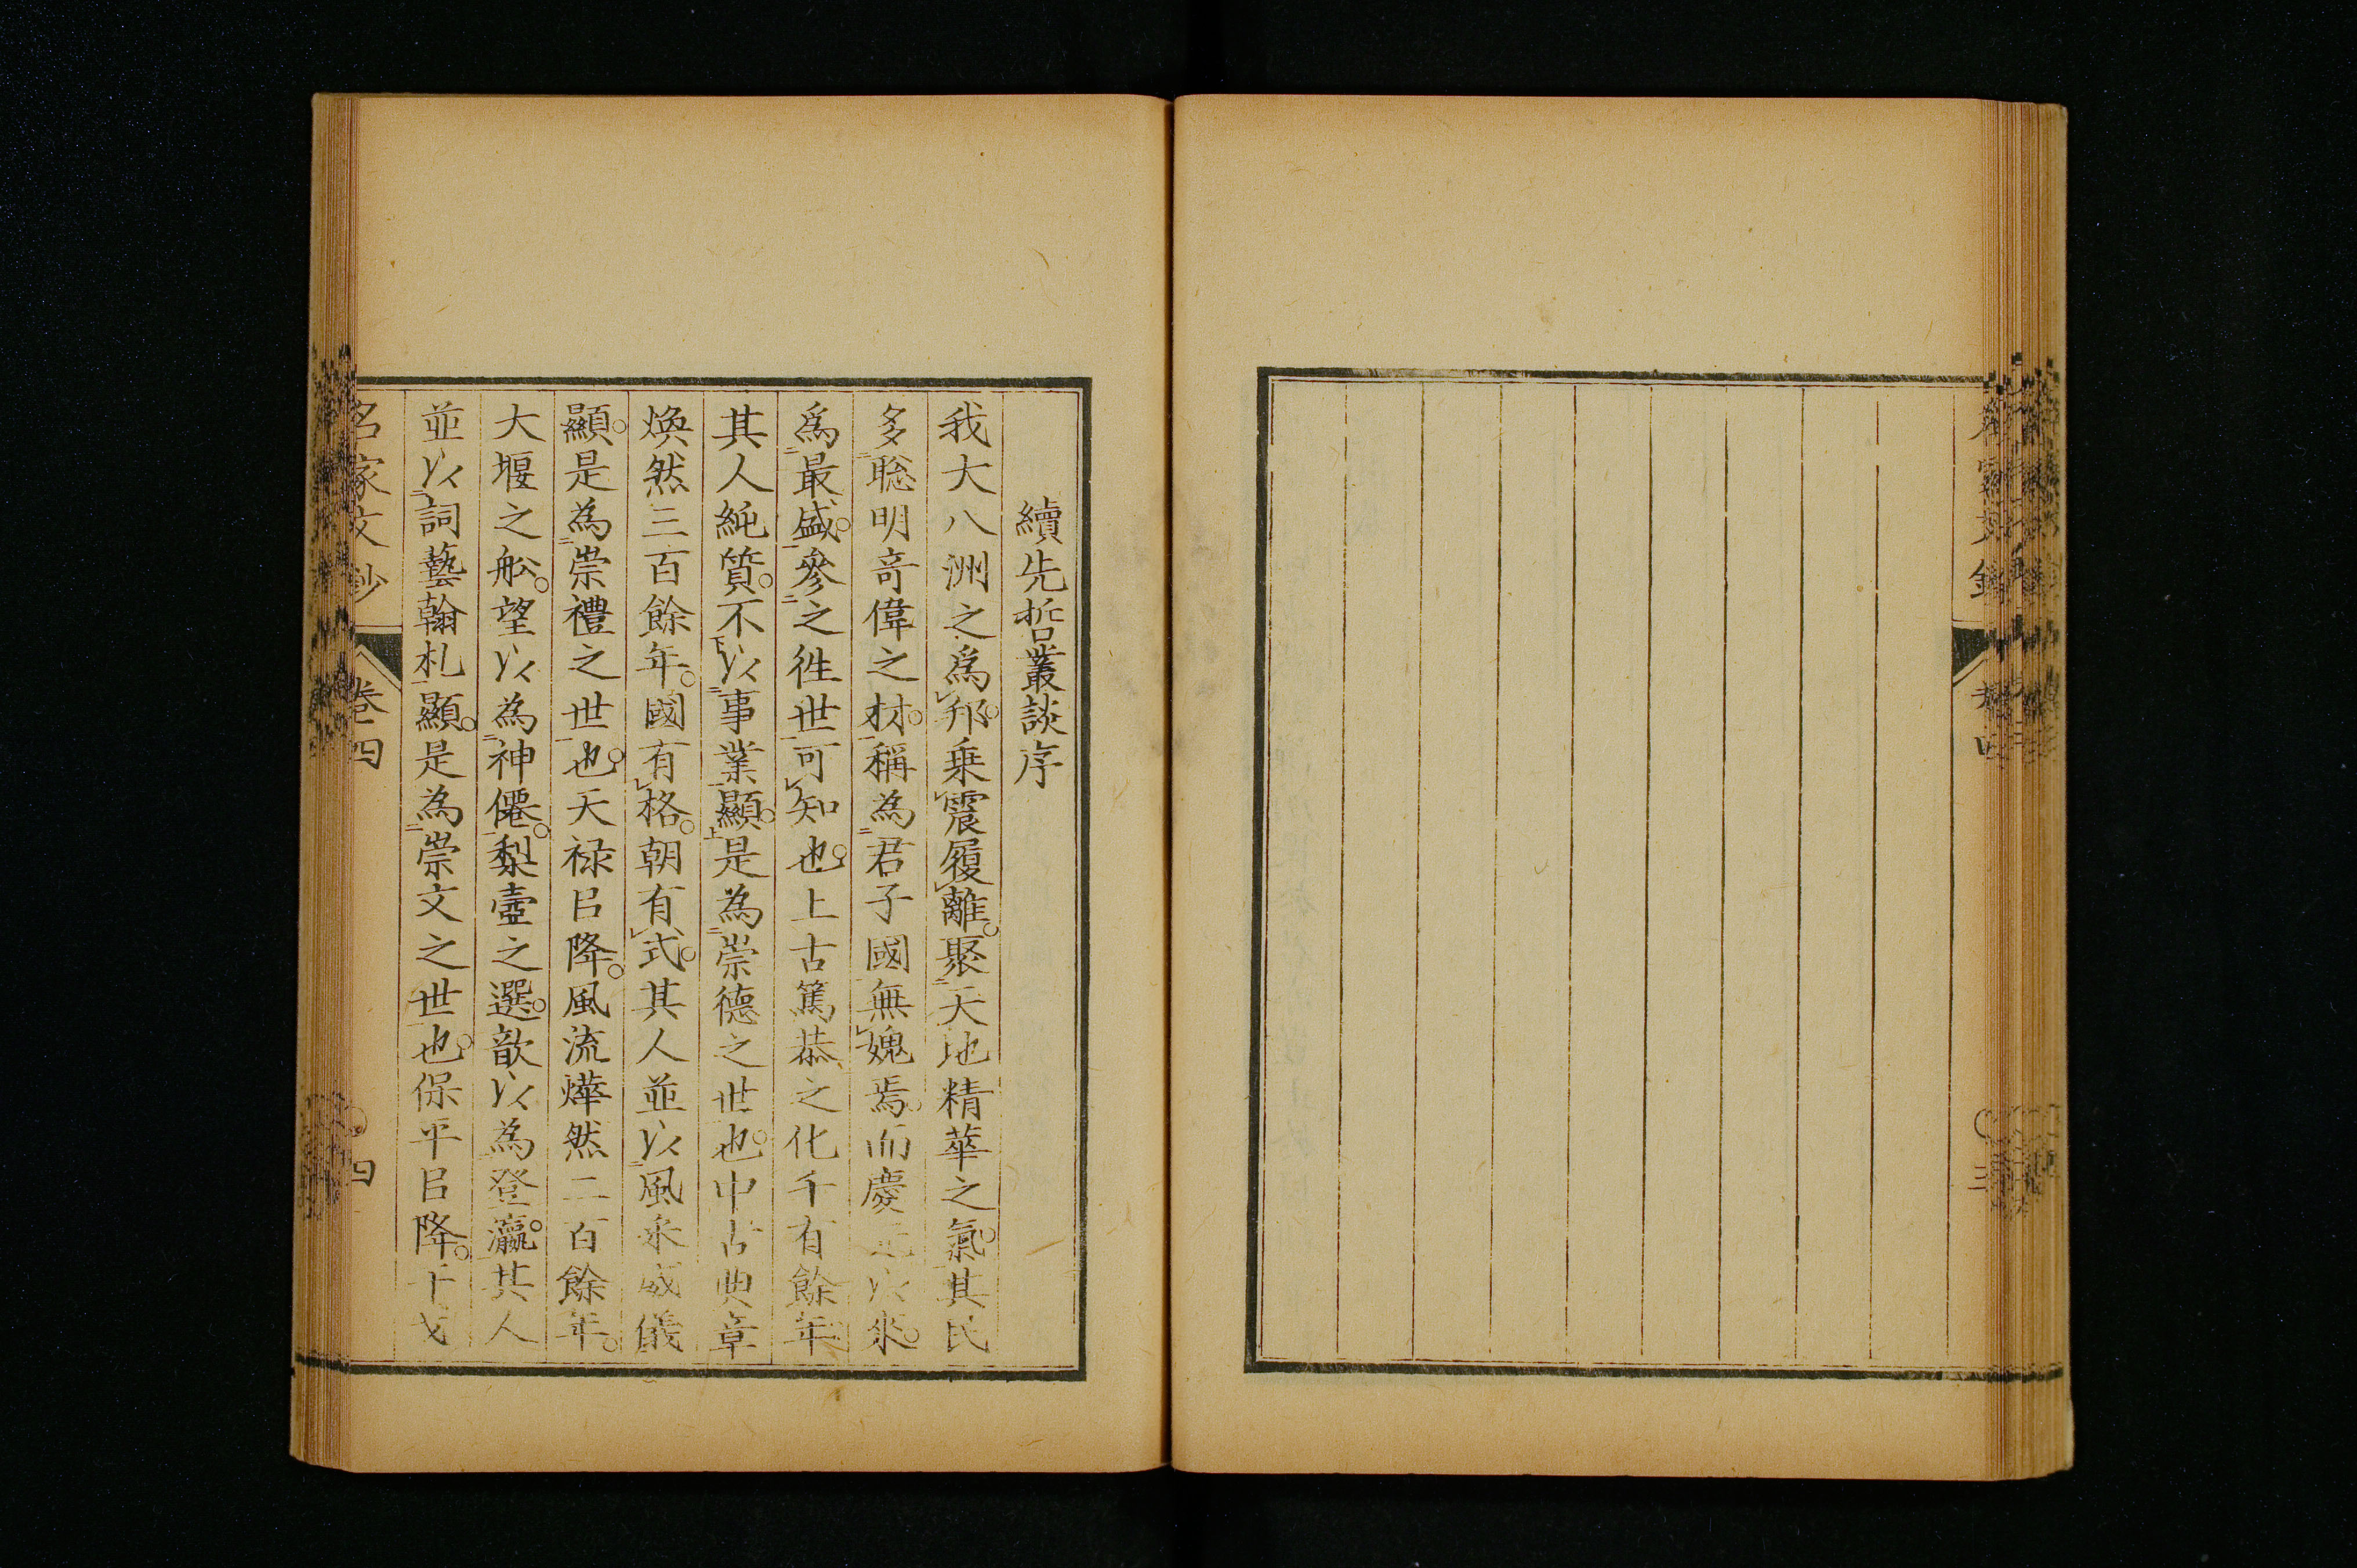 續先哲叢談序
我大八洲之爲邦乗震履離聚天地精華之氣其民
多聡明竒偉之材稱為君子國無媿焉而慶元以來
爲最盛參之徃世可知也上古篤恭之化千有餘年
其人純質不以事業顯是為崇德之世也中古典章
煥然三百餘年國有格朝有式其人並以風采威儀
顯是為崇禮之世也天禄㠯降風流燁然二百餘年
大堰之舩望以為神僊梨壷之選歆以為登瀛其人
並以詞藝翰札顯是為崇文之世也保平㠯降干戈
名家文抄
卷四
四